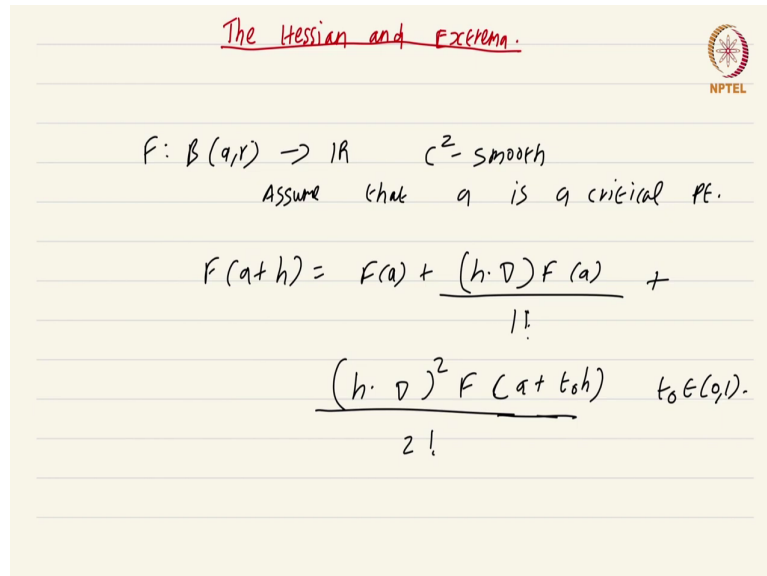 The Hessian and Extrema.
NPTEL
F: B(a,r) → IR C²- smooth
Assume that a is a critical pt.
F(a+h) = F(a) + (h·D)F(a) +
1!
(h·D)² F(a+t₀h) t₀∈(0,1).
2!